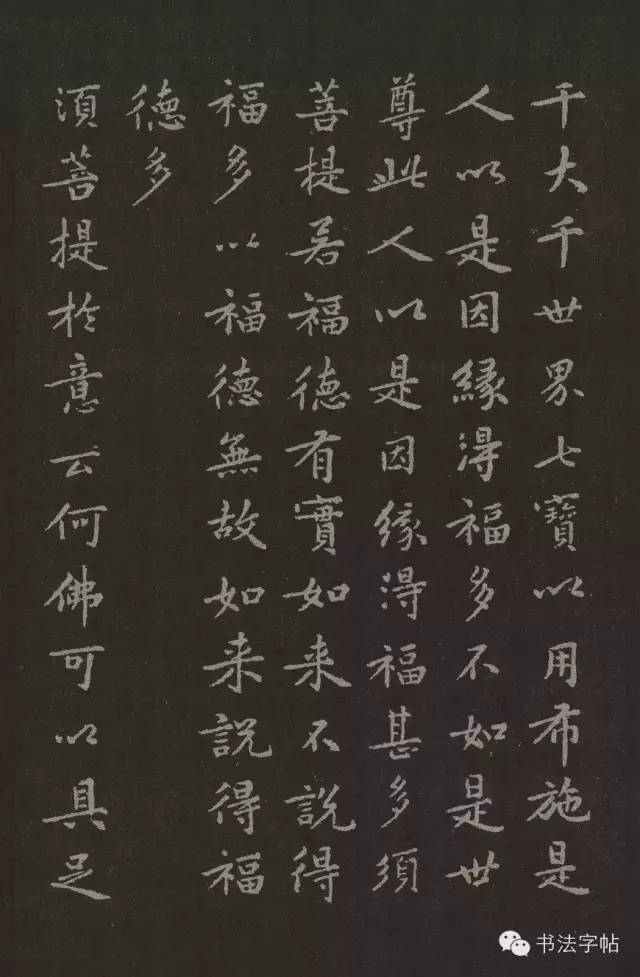 千大千世界七寶以用布施是
人以是因緣淂福多不如是世
尊此人以是因緣淂福甚多須
菩提若福德有實如来不說得
福多以福德無故如来說得福
德多
須菩提於意云何佛可以具足
书法字帖